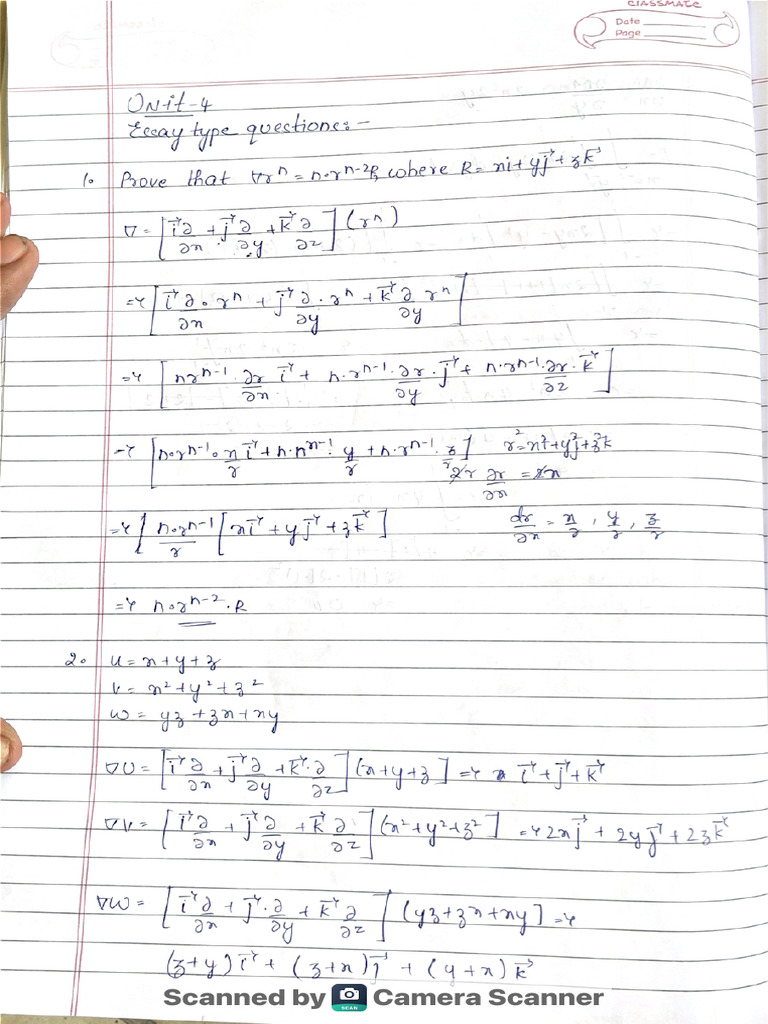 CLASSMATE
Date
Page
Unit-4
Essay type questions:-
1. Prove that ∇rⁿ = n·rⁿ⁻²R, where R = xi + yj⃗ + zk⃗
∇ = [i⃗∂/∂x + j⃗∂/∂y + k⃗∂/∂z] (rⁿ)
⇒ [i⃗∂/∂x · rⁿ + j⃗∂/∂y · rⁿ + k⃗∂/∂y rⁿ]
⇒ [nrⁿ⁻¹ · ∂r/∂x i⃗ + n·rⁿ⁻¹ · ∂r/∂y · j⃗ + n·rⁿ⁻¹ · ∂r/∂z · k⃗]
⇒ [n·rⁿ⁻¹ · x/r i⃗ + n·nⁿ⁻¹ y/r + n·rⁿ⁻¹ · z/r] r² = x²i + y²j + z²k
2r ∂r/∂x = 2x
⇒ [n·rⁿ⁻¹/r [xi⃗ + yj⃗ + zk⃗] dr/∂x = x/r, y/r, z/r
⇒ n·rⁿ⁻² · R
2. u = x + y + z
v = x² + y² + z²
w = yz + zx + xy
∇U = [i⃗∂/∂x + j⃗∂/∂y + k⃗·∂/∂z] (x + y + z] ⇒ i⃗ + j⃗ + k⃗
∇v = [i⃗∂/∂x + j⃗∂/∂y + k⃗ ∂/∂z] (x² + y² + z²] ⇒ 2xj⃗ + 2yj⃗ + 2zk⃗
∇w = [i⃗∂/∂x + j⃗·∂/∂y + k⃗ ∂/∂z] (yz + zx + xy] ⇒
(z + y) i⃗ + (z + x) j⃗ + (y + x) k⃗
Scanned by Camera Scanner
SCAN